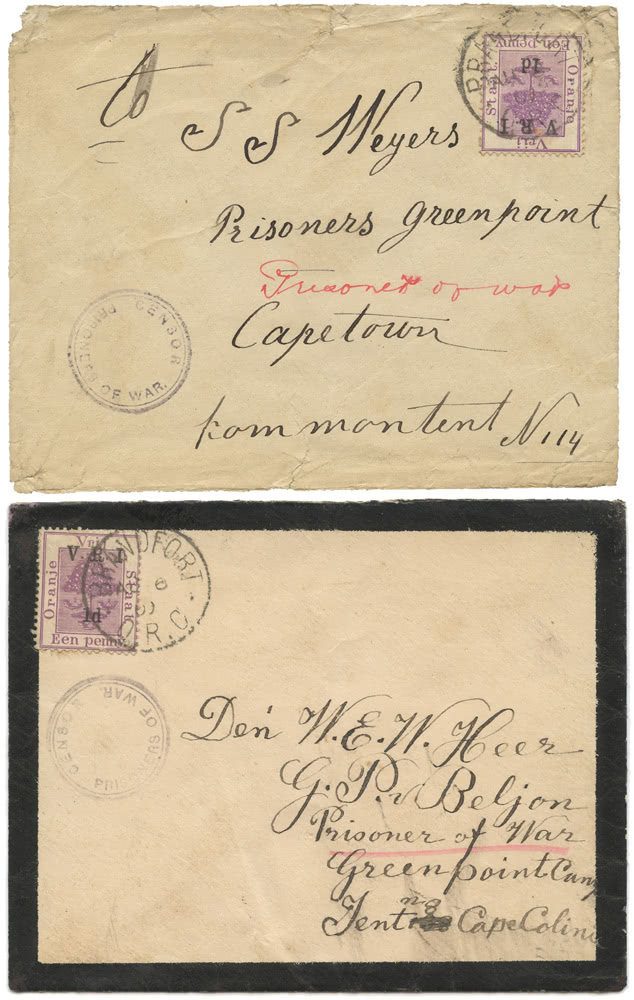 to
S S Weyers
Prisoners greenpoint
Prisoner of war
Capetown
kommontent N 114
CENSOR
PRISONERS OF WAR.
Oranje
Vrij
Staat
Een penny
V. R. I
1d
BRANDFORT
O.R.C.
Oranje
Vrij
Staat
Een penny
V. R. I
1d
CENSOR
PRISONERS OF WAR.
Den W. E. W. Heer
G. P. v Beljon
Prisoner of War
Greenpoint Camp
Tent n8 Cape Colin